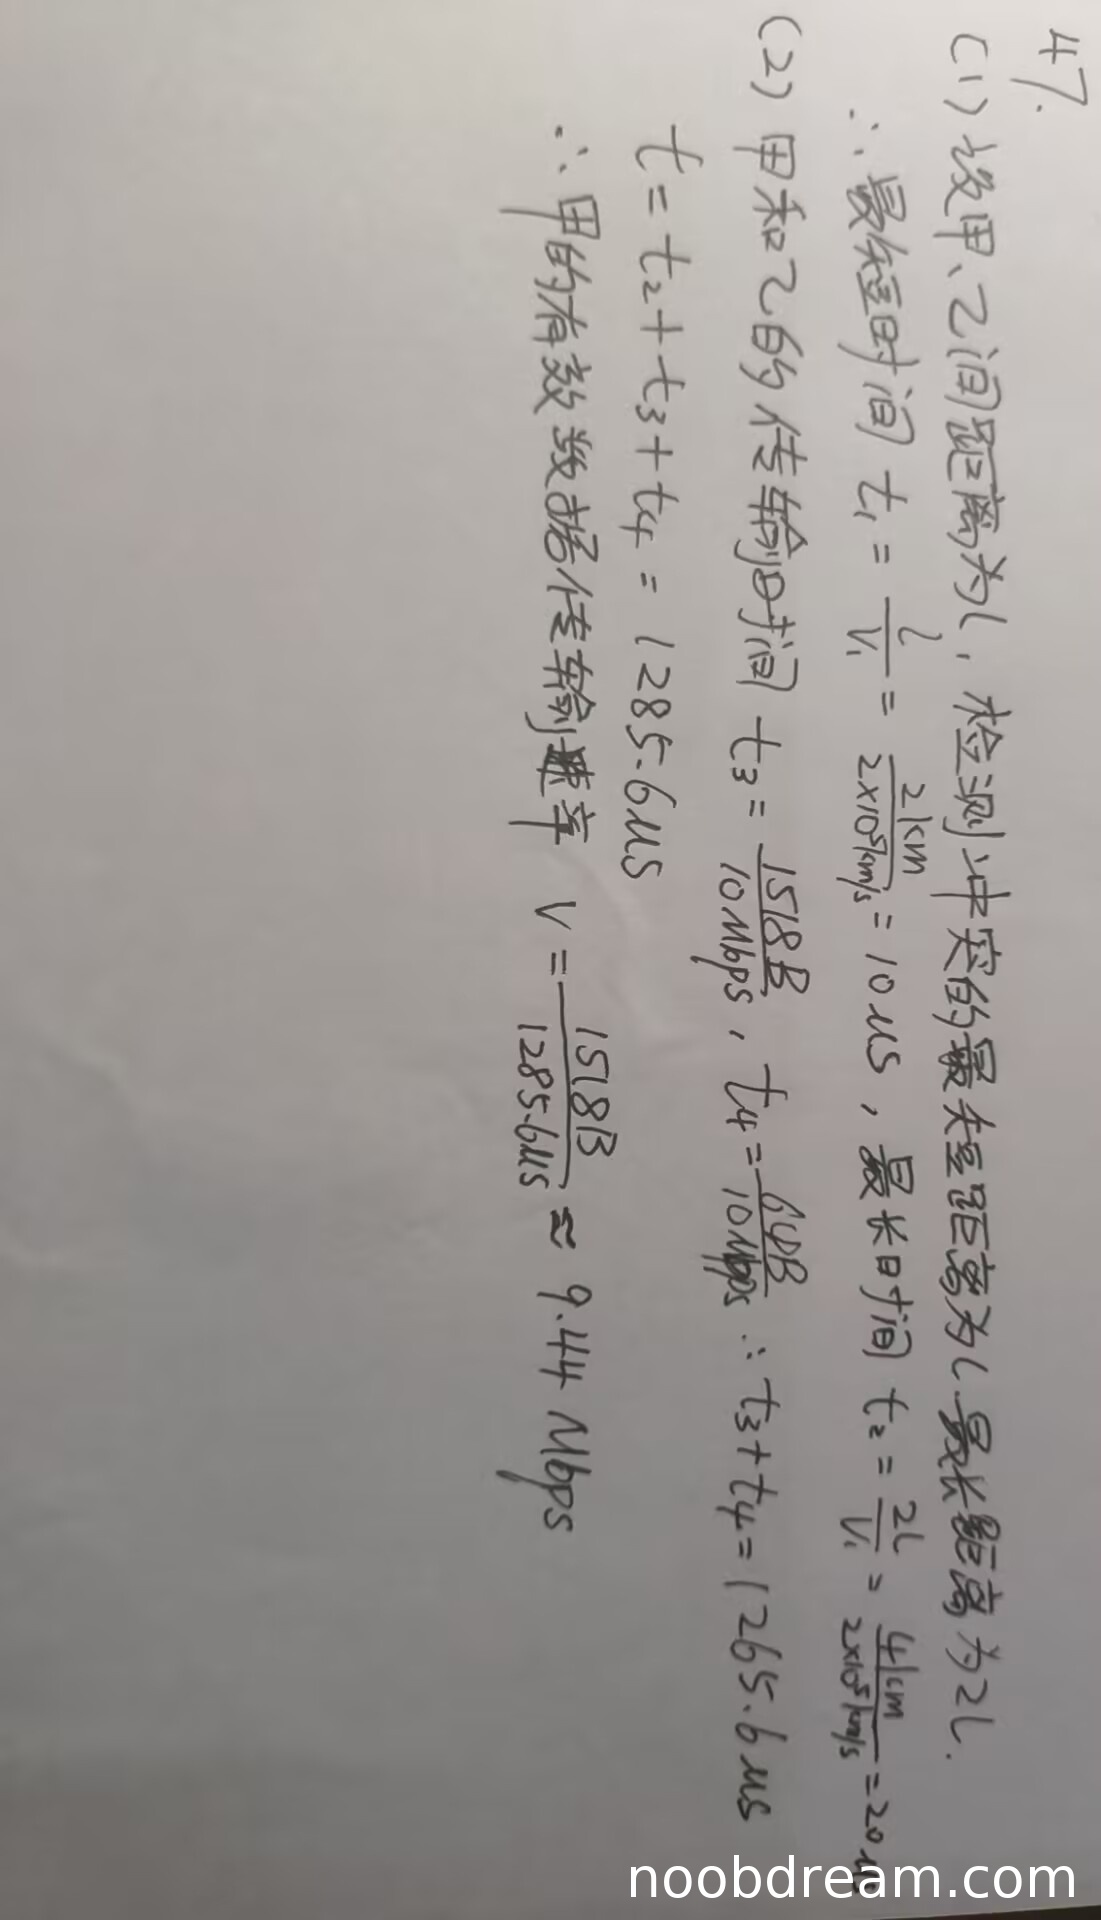 47.
(1) 设甲、乙间距离为l，检测冲突的最短距离为l最长距离为2l.
∴最短时间 t₁ = l/V₁ = 2km/2×10⁵km/s = 10μs，最长时间 t₂ = 2l/V₁ = 4km/2×10⁵km/s = 20μs
(2) 甲和乙的传输时间 t₃ = 1518B/10Mbps，t₄ = 64B/10Mbps ∴ t₃+t₄ = 1265.6μs
t = t₂ + t₃ + t₄ = 1285.6μs
∴甲的有效数据传输速率 V = 1518B/1285.6μs ≈ 9.44 Mbps
noobdream.com